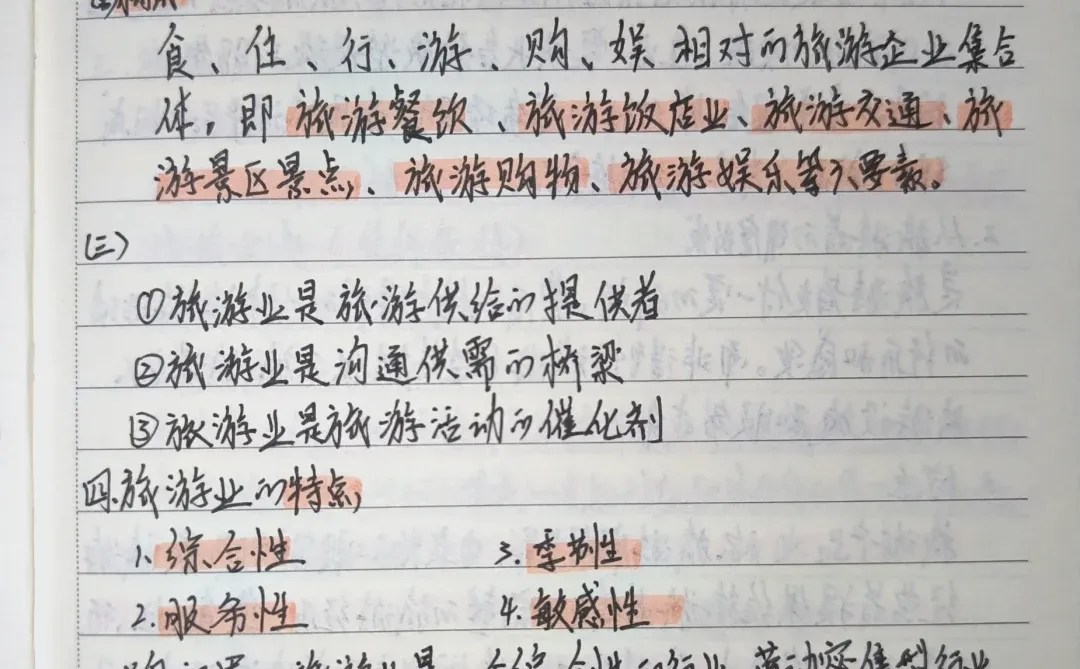 食、住、行、游、购、娱相对的旅游企业集合
体，即旅游餐饮、旅游饭店业、旅游交通、旅
游景区景点、旅游购物、旅游娱乐等六要素。
(三)
①旅游业是旅游供给的提供者
②旅游业是沟通供需的桥梁
③旅游业是旅游活动的催化剂
四.旅游业的特点
1.综合性 3.季节性
2.服务性 4.敏感性
旅游业是一个综合性的行业，劳动密集型行业